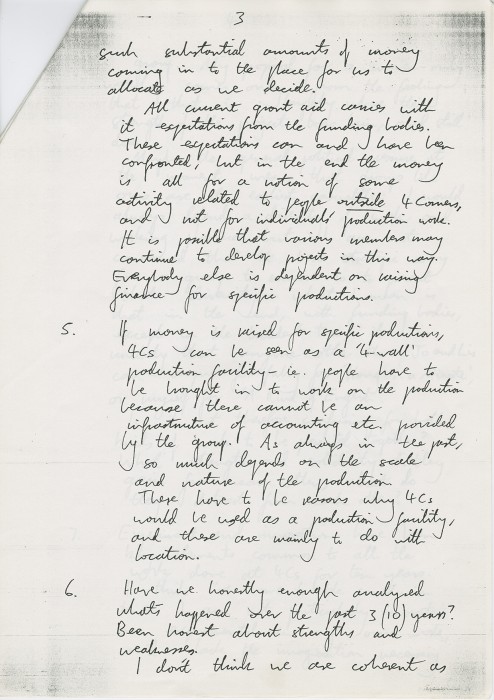 3
such substantial amounts of money
coming in to the place for us to
allocate as we decide.
All current grant aid carries with
it expectations from the funding bodies.
These expectations can and have been
confronted, but in the end the money
is all for a notion of some
activity related to people outside 4 Corners,
and not for individuals' production work.
It is possible that various members may
continue to develop projects in this way.
Everybody else is dependent on raising
finance for specific productions.
5. If money is raised for specific productions,
4Cs can be seen as a '4-wall'
production facility - i.e. people have to
be brought in to work on the production
because there cannot be an
infrastructure of accounting etc. provided
by the group. As always in the past,
so much depends on the scale
and nature of the production.
There have to be reasons why 4Cs
would be used as a production facility,
and these are mainly to do with
location.
6. Have we honestly enough analysed
what's happened over the past 3 (10) years?
Been honest about strengths and
weaknesses.
I don't think we are coherent as